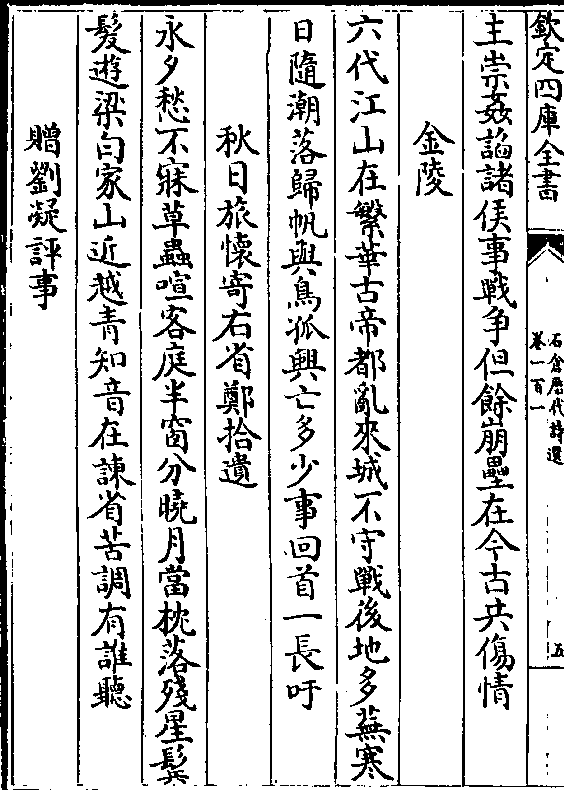 欽定四庫全書
石倉歴代詩選
卷一百一
五
主崇姦謟諸侯事戰争但餘崩壘在今古共傷情
金陵
六代江山在繁華古帝都亂來城不守戰後地多蕪寒
日隨潮落歸帆與鳥孤興亡多少事回首一長吁
秋日旅懷寄右省鄭拾遺
永夕愁不寐草蟲喧客庭半窗分曉月當枕落殘星鬂
髮遊梁白家山近越青知音在諫省苦調有誰聽
贈劉凝評事